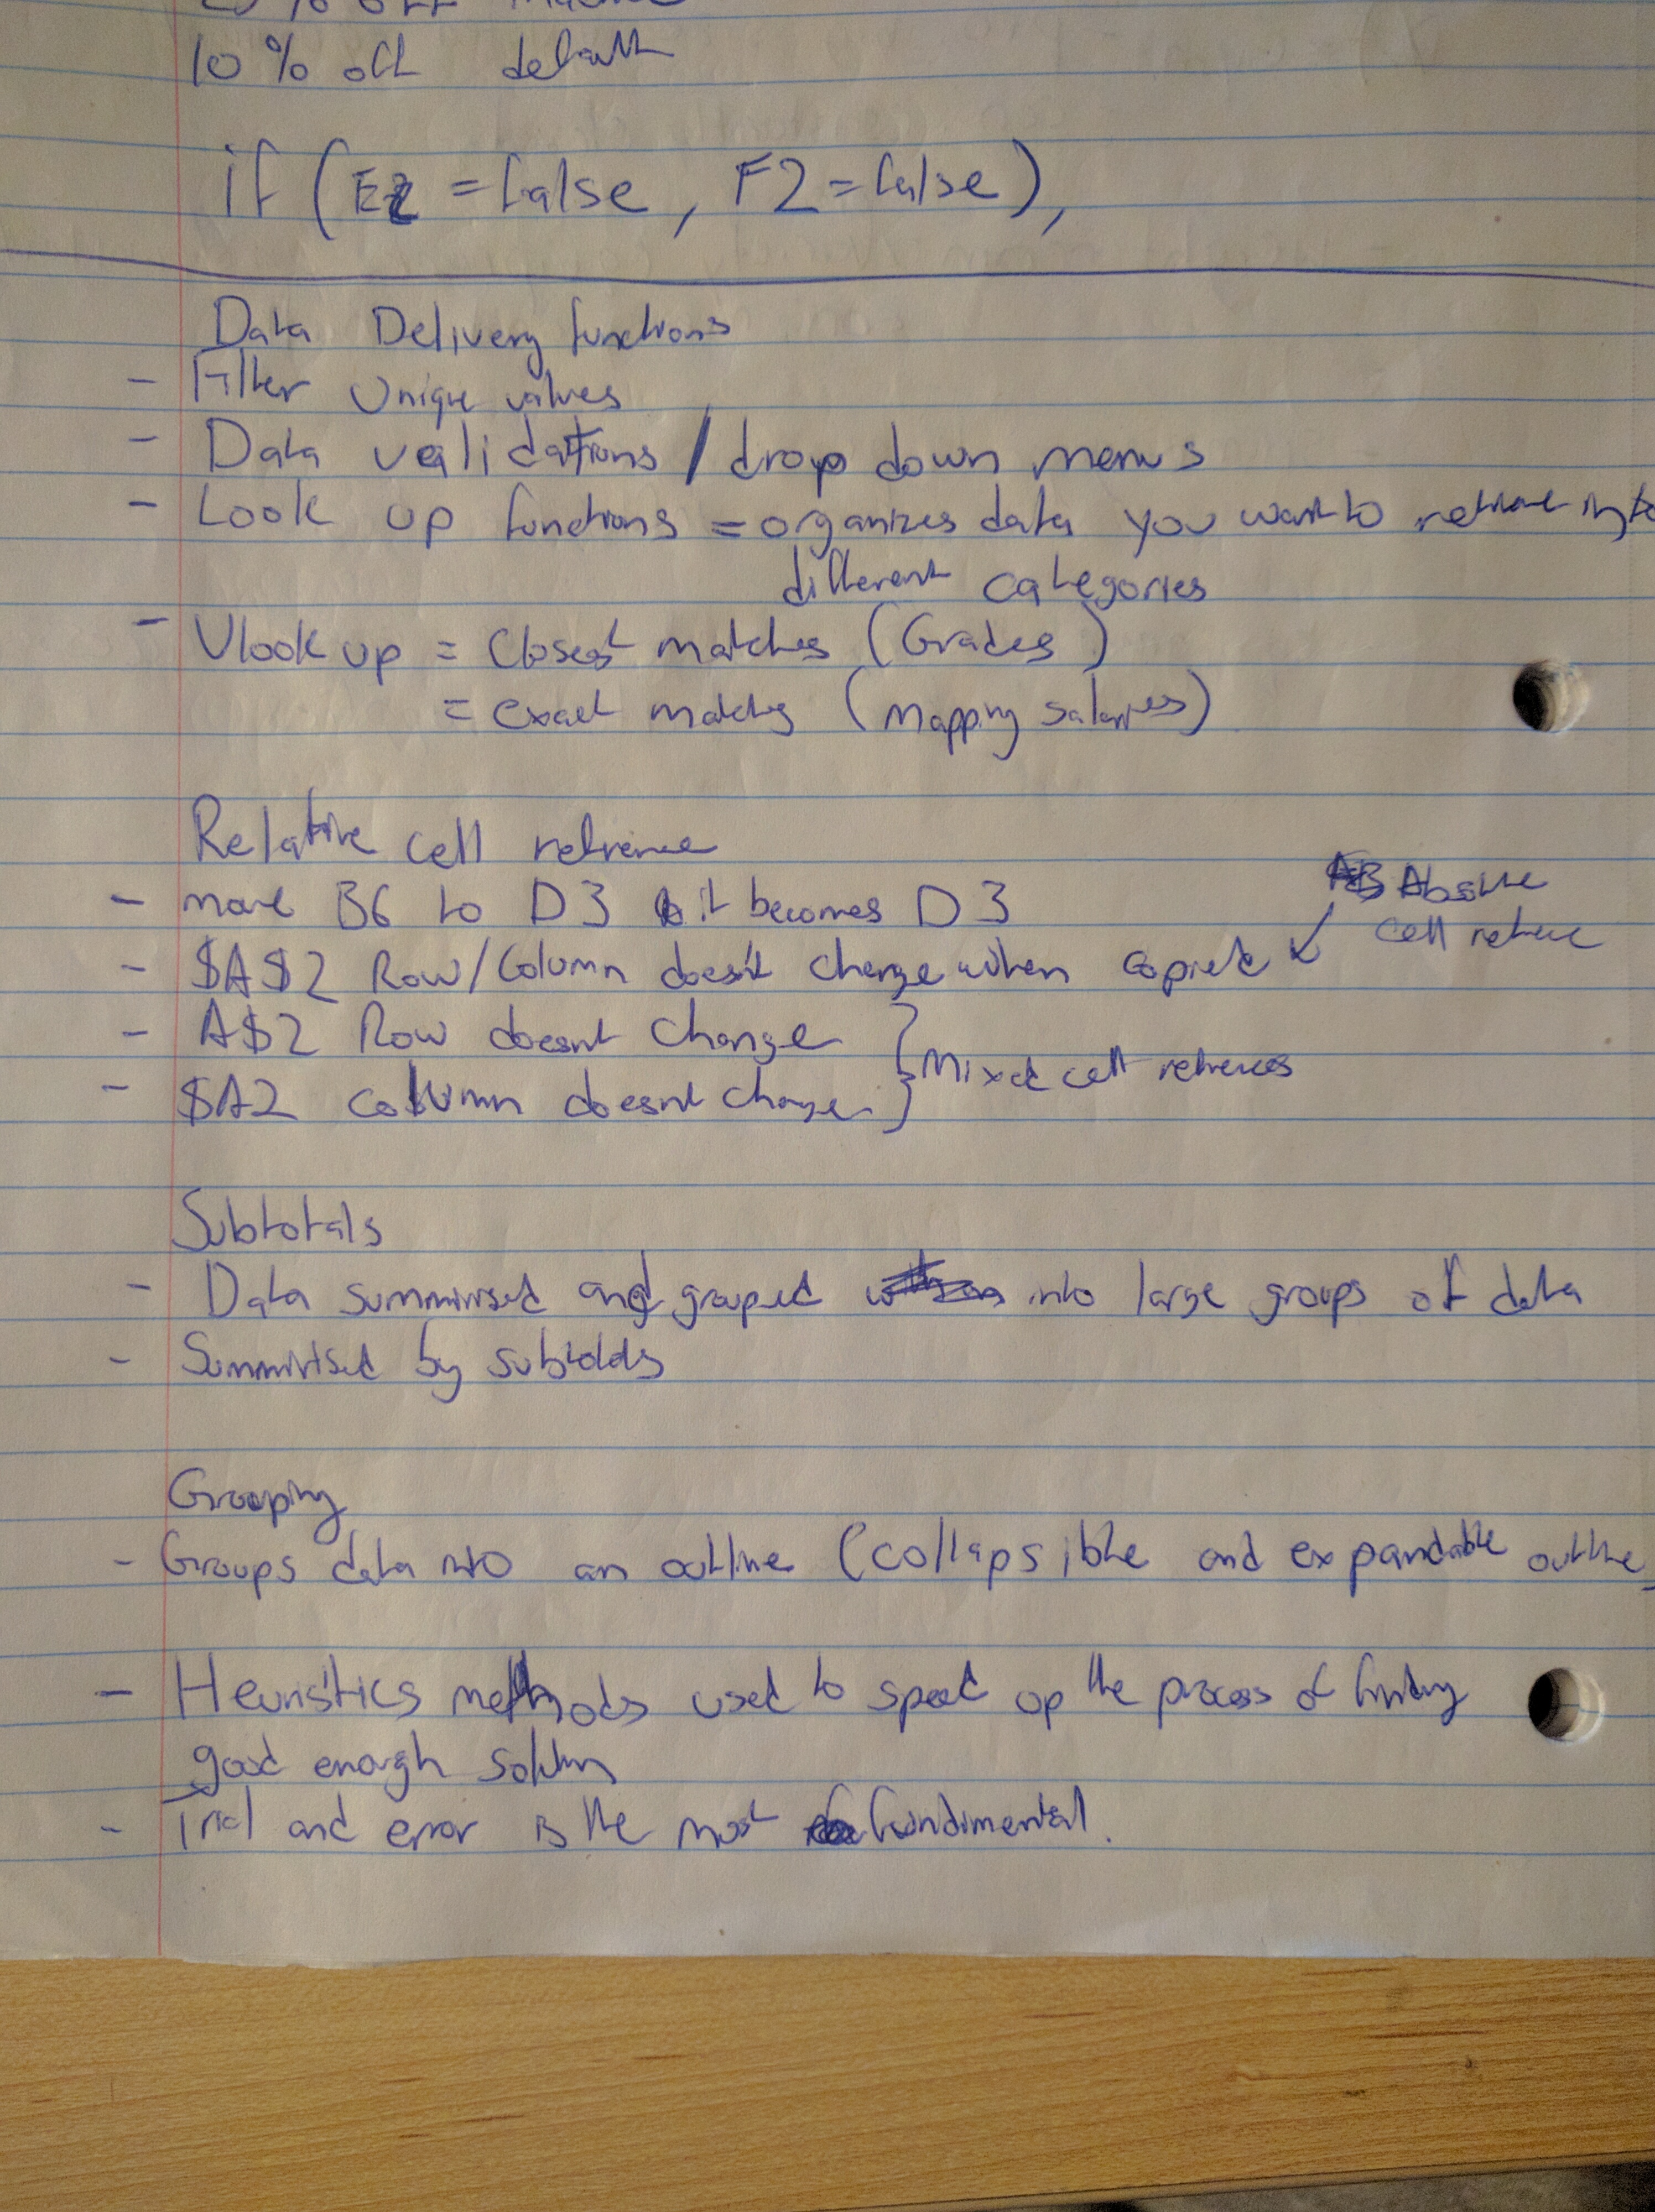 10 % off default
if (E2 = false, F2 = false),
Data Delivery functions
- Filter Unique values
- Data validations / drop down menus
- Look up functions = organizes data you want to retrieve into
different categories
- Vlook up = Closest matches (Grades)
= exact matches (Mapping salaries)
Relative cell refrence
- move B6 to D3 it becomes D3
Absolute
cell refrence
- $A$2 Row/Column doesn't change when copied
- A$2 Row doesnt change
} Mixed cell refrences
- $A2 column doesnt change
Subtotals
- Data summirised and grouped into large groups of data
- Summirised by subtotals
Grouping
- Groups data into an outline (collapsible and expandable outline)
- Heuristics methods used to speed up the process of finding
good enough solution
- Trial and error is the most fundimental.